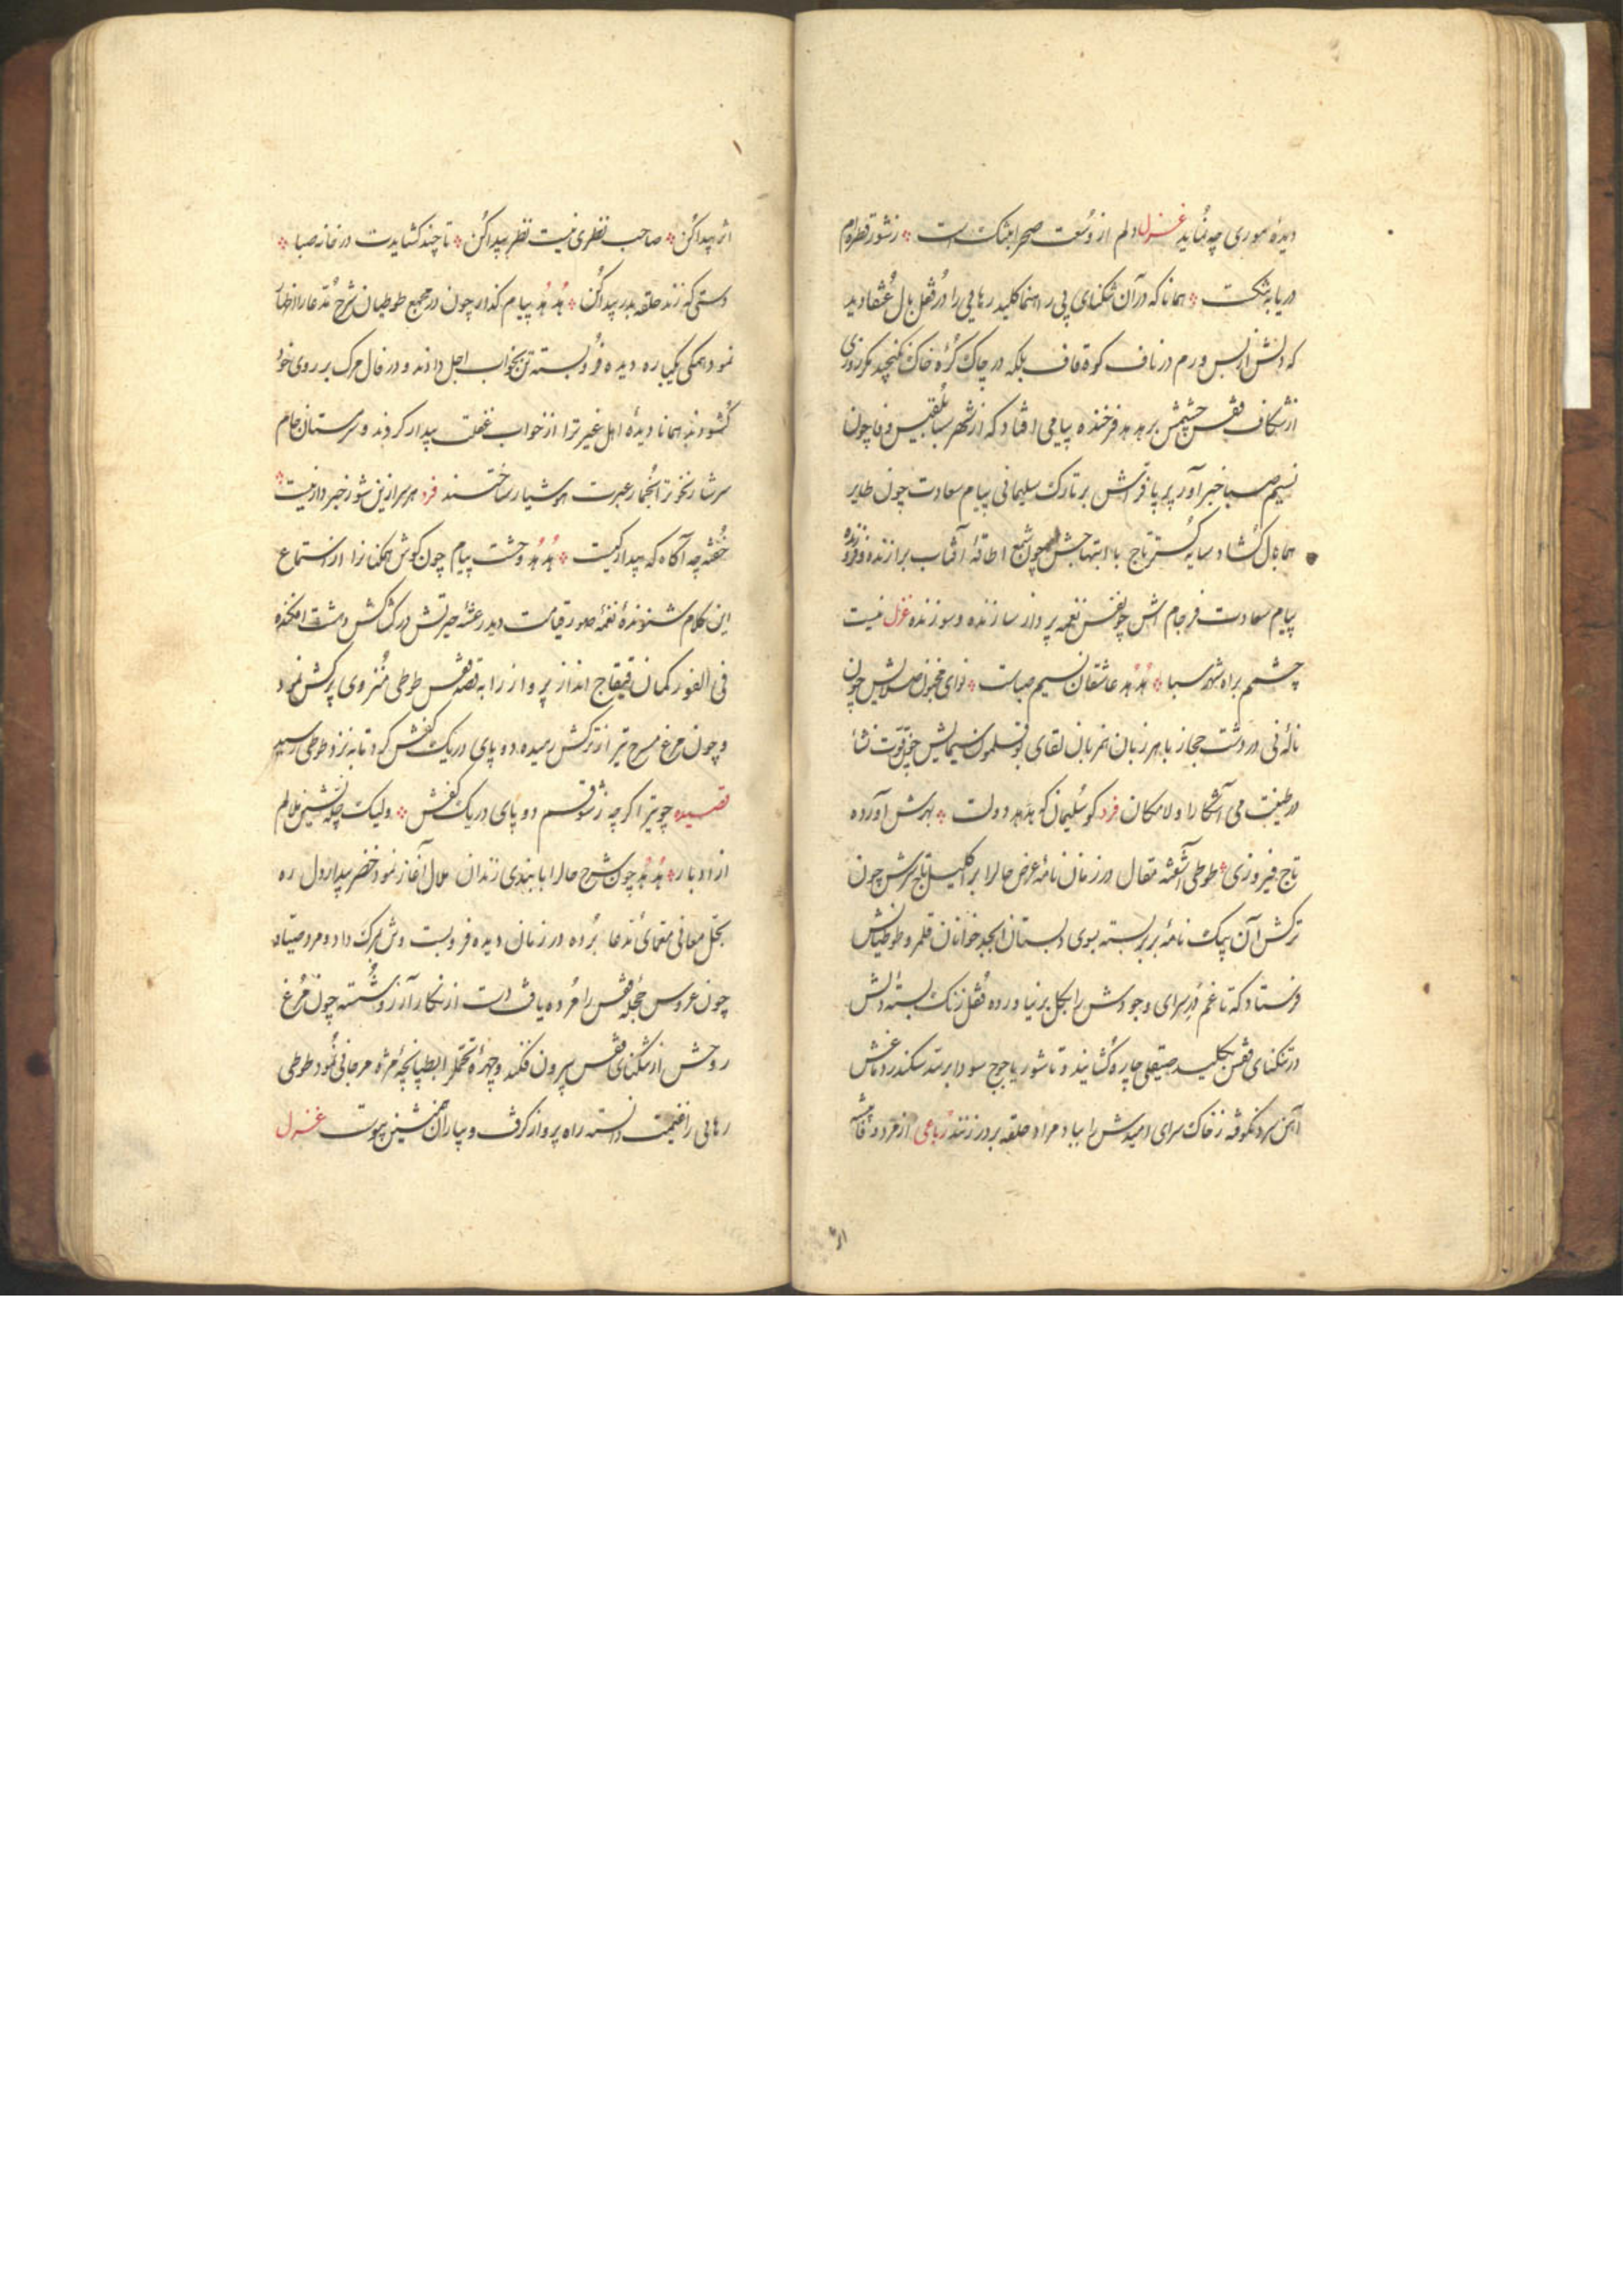 دیدهٔ موری چه نماید غزل دلم از وسعت صحرا بتنک است ؞ ز شور قطره‌ام
دریا به تنکست ؞ همانا که در آن تنکنای بی رهنما کلید رهایی را در قفل بال عنقا دید
که دلش از بس ورم در ناف کوه قاف بلکه در چاک کرهٔ خاک نکنجد مکر روزی
از شکاف قفس چشمش بر هدهد فرخنده پیامی افتاد که از شهر سبا بلقیس وفا چون
نسیم صبا خبر آور پر پا فرقش بر تارک سلیمانی پیام سعادت چون طایر
هما بال کشاد سایه کستر تاج با ابتهاجش چون شمع اطاقهٔ آفتاب برازنده و فروزنده
پیام سعادت فرجام اش چون نفس نغمه پرداز سازنده و سوزنده غزل نیست
چشمم براه شهر سبا ؞ هدهد عاشقان نسیم صباست ؞ نوای مخبر اصلایش چون
نالهٔ نی در دشت حجاز با هر زبان همزبان لقای بوقلمون سیمایش چون قوت نشأ
در طینت می آشکارا و لامکان فرد کو سلیمان کو هدهد دولت ؞ بهرش آورده
تاج فیروزی ؞ طوطی آشفته مقال در زمان نامهٔ عرض حال را بر اکلیل تاج سرش چون
ترکش آن پیک نامه بر بر بسته بسوی دبستان ابجد خوانان قلمرو طوطیانش
فرستاد که تا غم در سرای وجودش را بکل بر نیاورده قفل زنک بستهٔ دلش
در تنکنای قفس بکلید صیقلی چاره کشایند و تا شور یاجوج سودا بر سد سکندر دماغش
آهن سرد نکوفته ز خاک سرای امیدش را بباد مراد حلقه بر در زنند رباعی از مرد و قافیه
اثر پیدا کن ؞ صاحب نظری نیست نظر پیدا کن ؞ تا چند کشایدت در خانه صبا ؞
دستی که زند حلقه بدر پیدا کن ؞ هدهد پیام کذار چون در مجمع طوطیان شرح مدعا را اظهار
نمود همکی یکباره دیده فرو بسته تن بخواب اجل دادند و در فال مرک بر روی خود
کشودند همانا دیدهٔ اهل غیرت را از خواب غفلت بیدار کردند و سرمستان جام
سرشار نخوت را بخمار عبرت هوشیار ساختند فرد هر سر ازین شور خبردار نیست ؞
خفته چه آکاه که بیدار کیست ؞ هدهد وحشت پیام چون کوش همکنان را از استماع
این کلام شنوندهٔ نغمه صور قیامت دید رعشهٔ حیرتش در کشاکش دهشت افکنده
فی الفور کمان قیقاج انداز پرواز را به قصه قفس طوطی منزوی پرکش نمود
و چون مرغ سرخ تیر از ترکش رمیده دو پای در یک کفش کرد تا به نزد طوطی رسید
قصیده چو تیر اکر چه ز شوقم دو پای در یک کفش ؞ ولیک چله نشین ملالم
از ادبار ؞ هدهد چون شرح حال را با بندی زندان ملال آغاز نمود خضر بیدار دل ره
بحل معانی معمای مدعا برده در زمان دیده فرو بست و تن بمرک داد و مرد صیاد
چون عروس حجلهٔ قفس را مرده یافت دست از نکار آرزو شسته چون مرغ
روحش از تنکنای قفس بیرون فکند و چهرهٔ تحمل را بطپانچهٔ مژه مرجانی نمود طوطی
رهایی را غنیمت دانسته راه پرواز کرفت و بیاران همنشین پیوست غزل